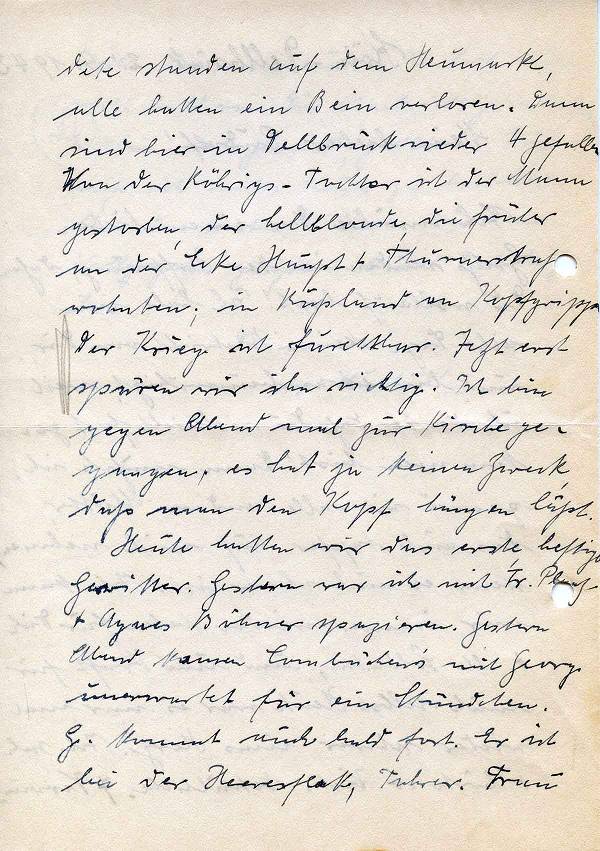 dete standen auf dem Heumarkt,
alle hatten ein Bein verloren. Dann
sind hier in Dellbrück wieder 4 gefallen
Von der Röhrigs-Tochter ist der Mann
gestorben, der hellblonde, die früher
an der Ecke Haupt + Thurnerstraße
wohnten; in Rußland an Kopfgrippe
Der Krieg ist furchtbar. Jetzt erst
spüren wir ihn richtig. Ich bin
gegen Abend mal zur Kirche ge-
gangen, es hat ja keinen Zweck,
daß man den Kopf hängen läßt.
Heute hatten wir das erste, heftige
Gewitter. Gestern war ich mit Fr.
+ Agnes Böhner spazieren. Gestern
Abend kamen Combüchens mit Georg
unerwartet für ein Stündchen.
G. kommt auch bald fort. Er ist
bei der Heeresflak, Fahrer. Frau